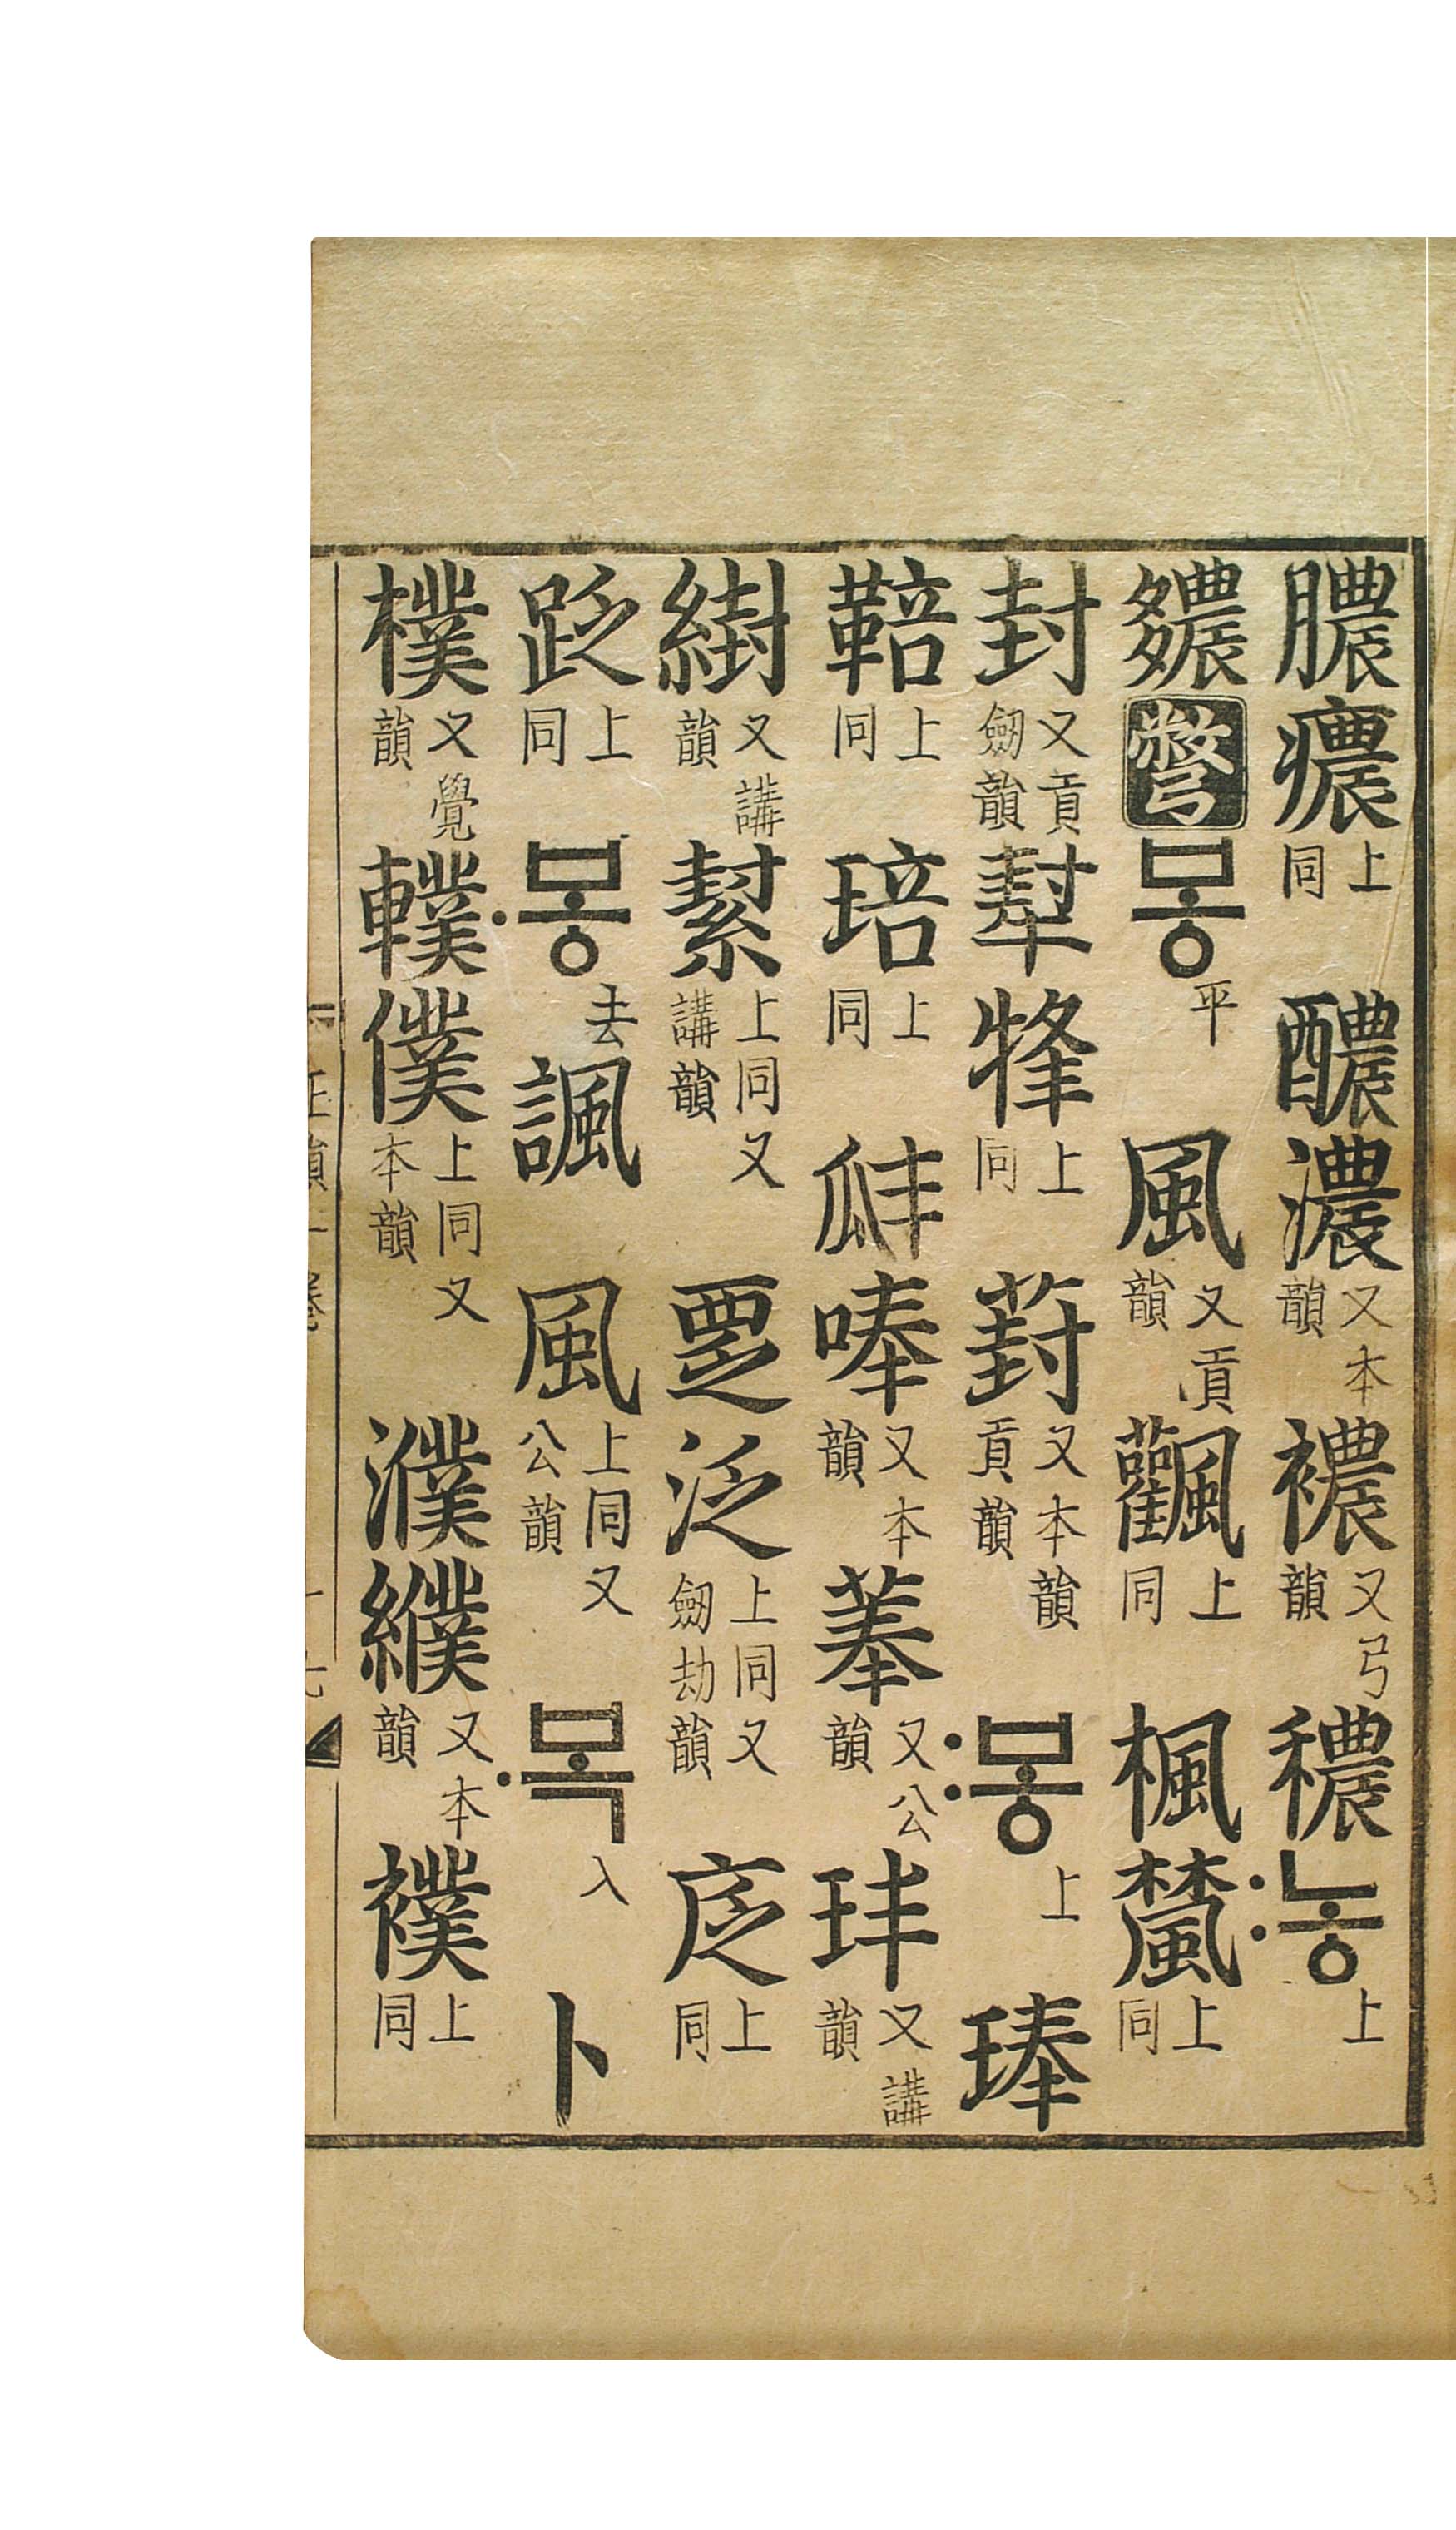 膿癑上同醲濃又本韻襛又弓韻穠〯농上
彆봉平風又貢韻飌上同楓檒上同
封又貢劒韻犎上同葑又本韻貢韻〯봉上琫
鞛上同琣上同唪又本韻菶又公韻玤又講韻
又講韻上同又講韻覂泛上同又劒劫韻上同
上同〮봉去諷風上同又公韻〮복入卜
樸又覺韻轐僕上同又本韻濮纀又本韻襆上同